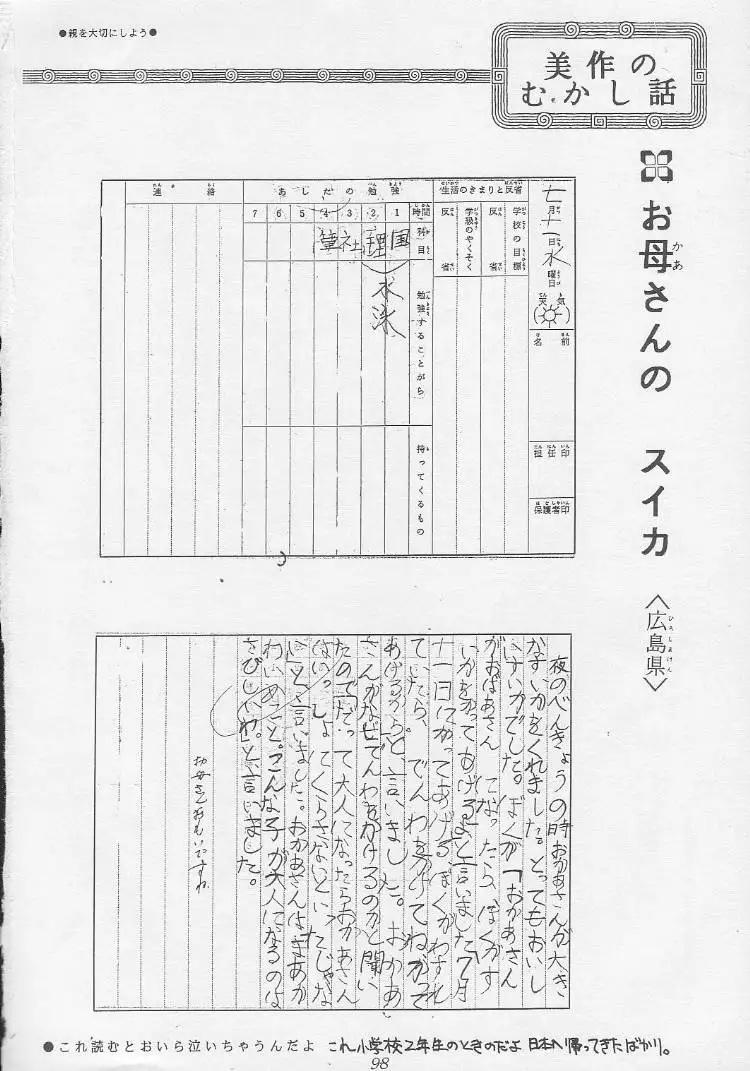 ●親を大切にしよう●
美作の
むかし話
お母さんの スイカ
〈広島県〉
七月十一日水曜日
天気
名前
担任印
保護者印
生活のきまりと反省
学校の目標
反省
学級のやくそく
反省
あしたの勉強
時間 1 2 3 4 5 6 7
科目
国 理 社 筆
勉強することがら
水泳
持ってくるもの
連絡
夜のべんきょうの時おかあさんが大き
なすいかをくれました。とってもおいし
いすいかでした。ぼくが「おかあさん
がおばあさん になったら、ぼくがす
いかをかってあげるよと言いました7月
十一日にかってあげる。ぼくがわすれ
ていたら、でんわをかけてね、かって
あげるから」と、言いました。おかあ
さんがなぜでんわをかけるのかと聞い
たので「だって大人になったらおかあさん
はいっしょ にくらさないといったじゃな
い」と言いました。おかあさんは「まあか
わいいこと。こんな子が大人になるのは
さびしいわ。」と、言いました。
お母さんおもいですね
●これ読むとおいら泣いちゃうんだよ これ小学校2年生のときのだよ 日本へ帰ってきたばかり。
98